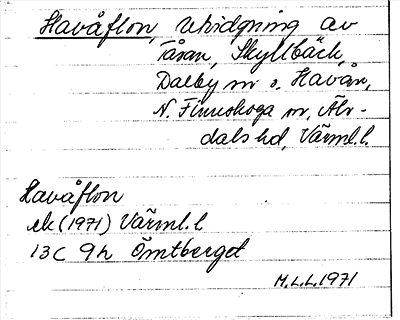 Havåflon, utvidgning av
Tåsan, Skyllbäck,
Dalby sn o. Havån,
N. Finnskoga sn, Älv-
dals hd, Värml. l.
Havåflon
ek (1971) Värml. l
13C 9h Örntberget
M.L.L. 1971